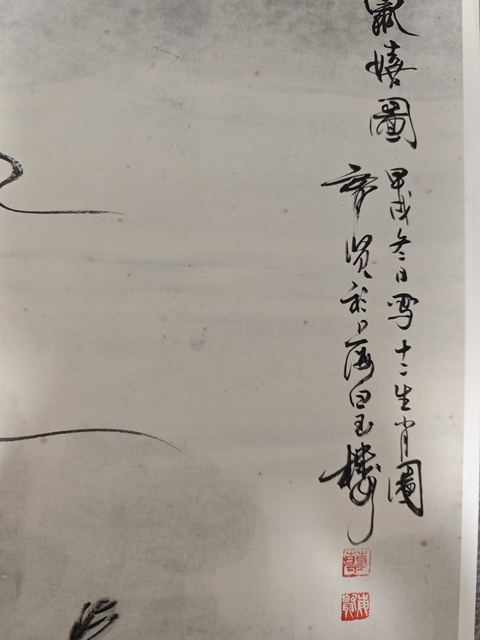 鼠嬉圖
甲戌冬日寫十二生肖圖
賢於上海白玉樓